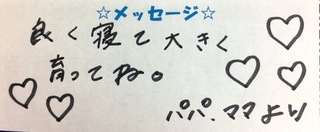 ☆メッセージ☆
良く寝て大きく
育ってね。
パパ、ママより